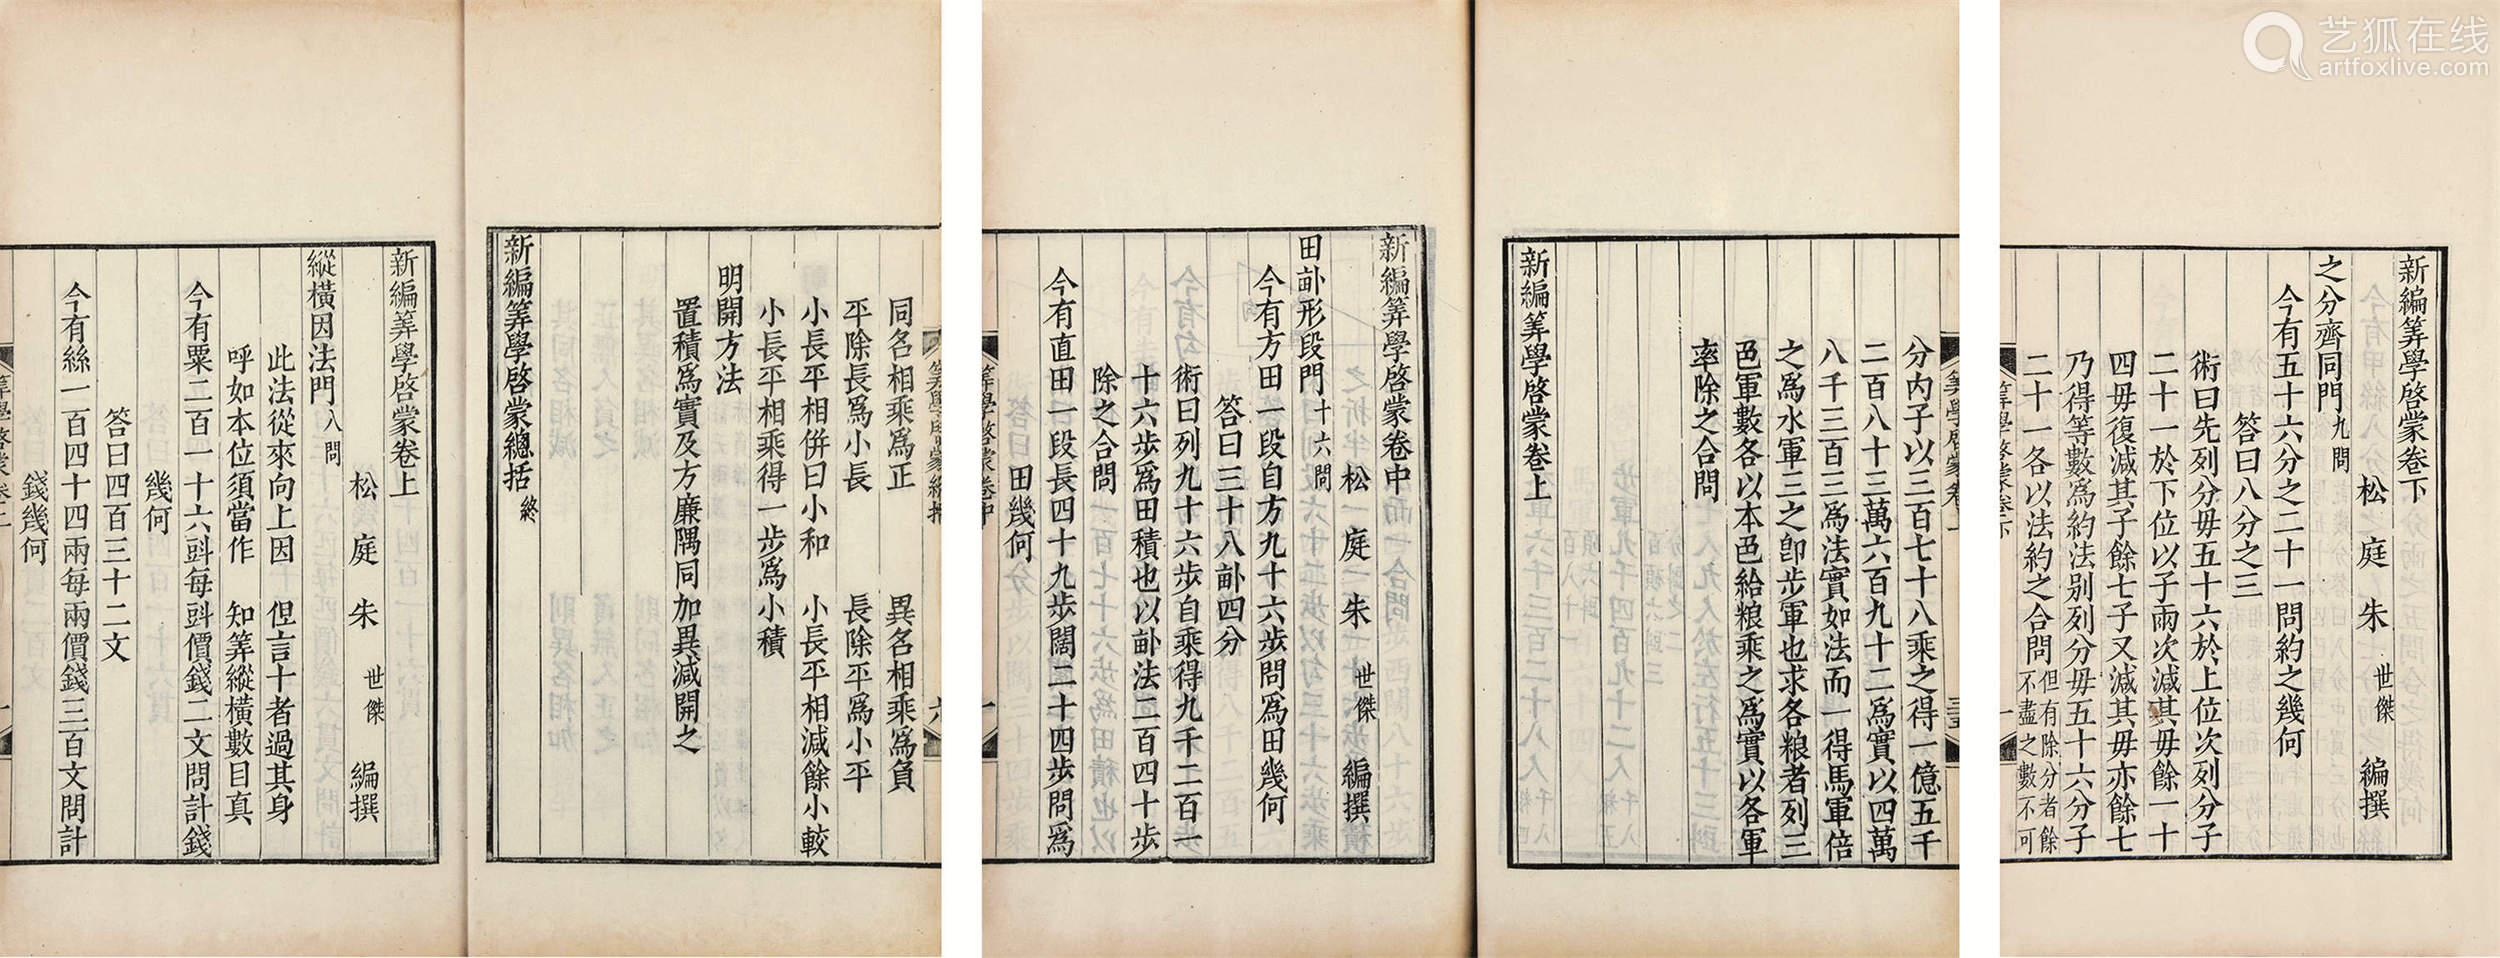 新編筭學啓蒙卷上
松庭 朱 世傑 編撰
縱橫因法門 八問
此法從來向上因 但言十者過其身
呼如本位須當作 知筭縱橫數目真
今有粟二百一十六㪷每㪷價錢二文問計錢
幾何
答曰四百三十二文
今有絲一百四十四兩每兩價錢三百文問計
錢幾何
同名相乘爲正 異名相乘爲負
平除長爲小長 長除平爲小平
小長平相併曰小和 小長平相減餘小較
小長平相乘得一步爲小積
明開方法
置積爲實及方廉隅同加異減開之
新編筭學啓蒙總括 終
新編筭學啓蒙卷中
松庭 朱 世傑 編撰
田畝形段門 十六問
今有方田一段自方九十六步問爲田幾何
答曰三十八畝四分
術曰列九十六步自乘得九千二百一
十六步爲田積也以畝法二百四十步
除之合問
今有直田一段長四十九步闊二十四步問爲
田幾何
筭學啓蒙卷中
分內子以三百七十八乘之得一億五千
二百八十三萬六百九十二爲實以四萬
八千三百三爲法實如法而一得馬軍倍
之爲水軍三之卽步軍也求各粮者列三
色軍數各以本色給粮乘之爲實以各軍
率除之合問
新編筭學啓蒙卷上
新編筭學啓蒙卷下
松庭 朱 世傑 編撰
之分齊同門 九問
今有五十六分之二十一問約之幾何
答曰八分之三
術曰先列分毋五十六於上位次列分子
二十一於下位以子兩次減其毋餘一十
四毋復減其子餘七子又減其毋亦餘七
乃得等數爲約法別列分毋五十六分子
二十一各以法約之合問 但有除分者餘
不盡之數不可
筭學啓蒙卷下
艺狐在线
artfoxlive.com